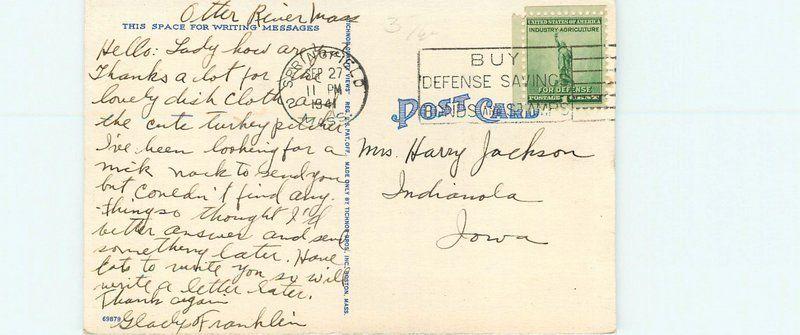 Otter River Mass
THIS SPACE FOR WRITING MESSAGES
Hello: Lady how are
Thanks a lot for the
lovely dish cloth and
the cute turkey pitcher
I've been looking for a
nick nack to send you
but couldn't find any-
thing so thought I'd
better answer and send
something later. Have
lots to write you so will
write a letter later.
Thank again
Gladys Franklin
69879
TICHNOR QUALITY VIEWS REG. U.S. PAT. OFF. MADE ONLY BY TICHNOR BROS., INC., BOSTON, MASS.
SPRINGFIELD
SEP 27
11 PM
1941
MASS.
BUY
DEFENSE SAVINGS
BONDS AND STAMPS
UNITED STATES OF AMERICA
INDUSTRY AGRICULTURE
FOR DEFENSE
1¢ POSTAGE 1¢
POST CARD
Mrs. Harry Jackson
Indianola
Iowa